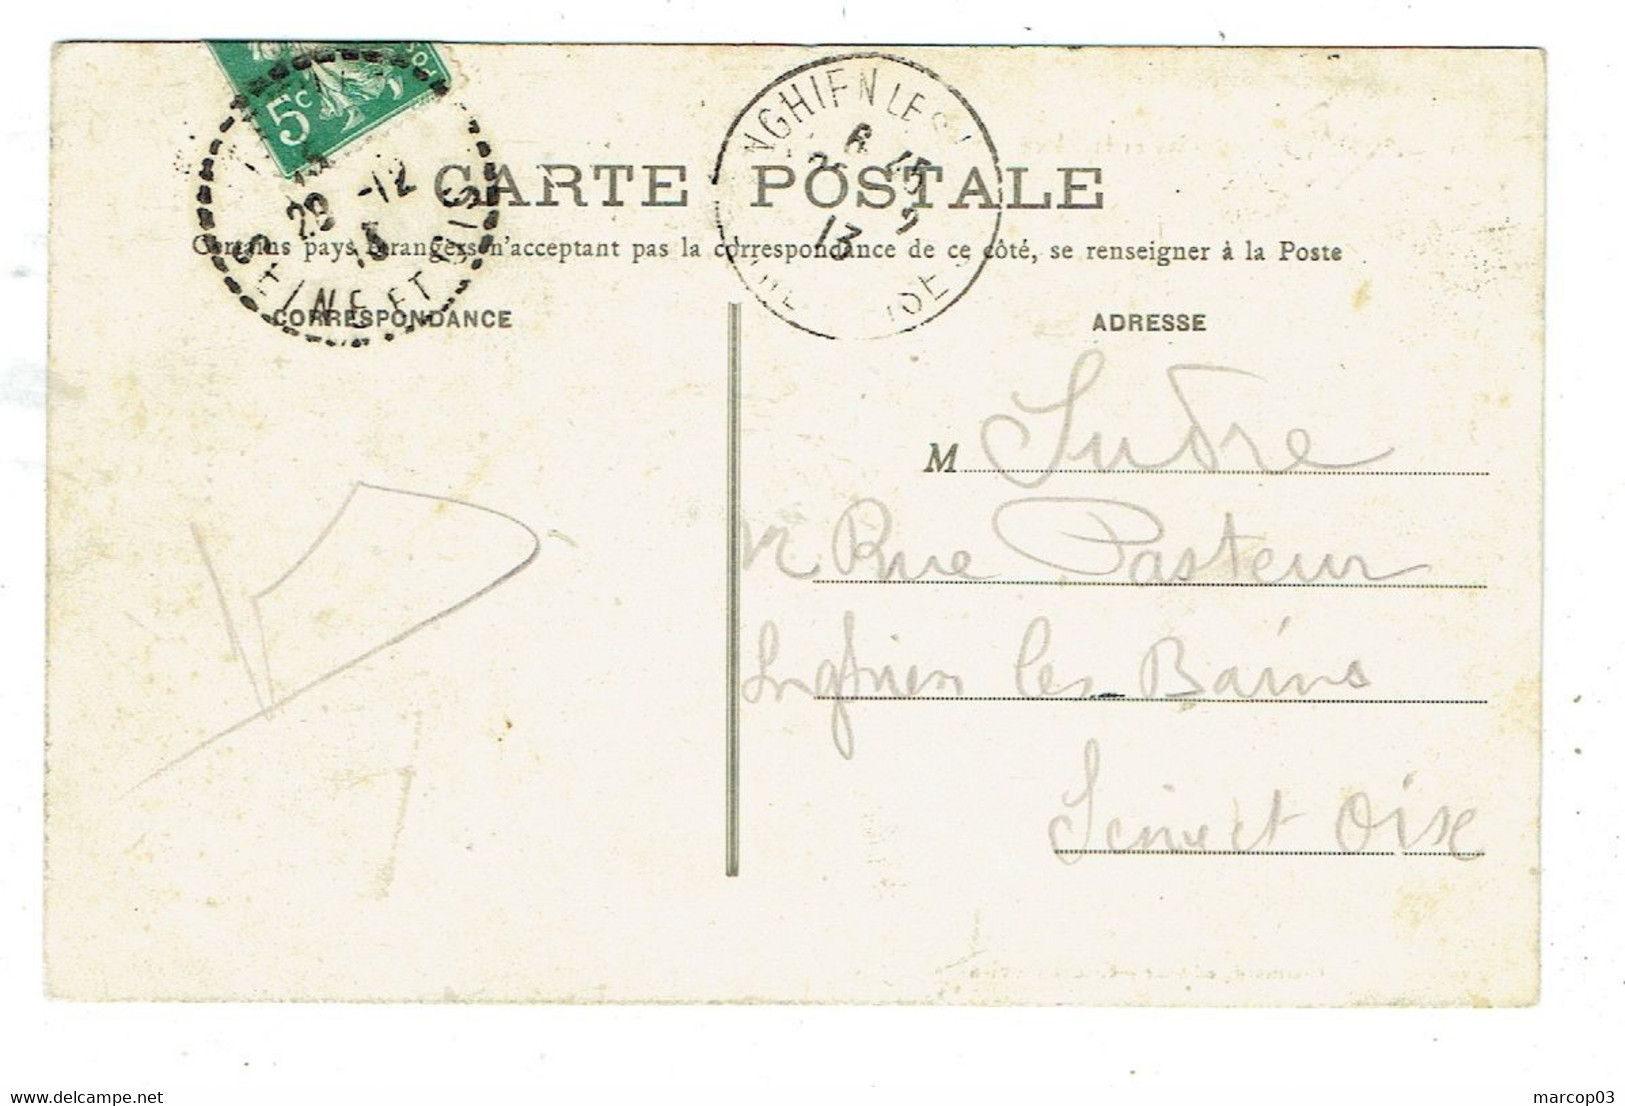 5c
POS
29 -12
SEINE ET OISE
NGHIEN LES
6 15
13
CARTE POSTALE
Certains pays étrangers n'acceptant pas la correspondance de ce côté, se renseigner à la Poste
CORRESPONDANCE
ADRESSE
M Sudre
Rue Pasteur
Enghien les Bains
Seine et Oise
marcop03